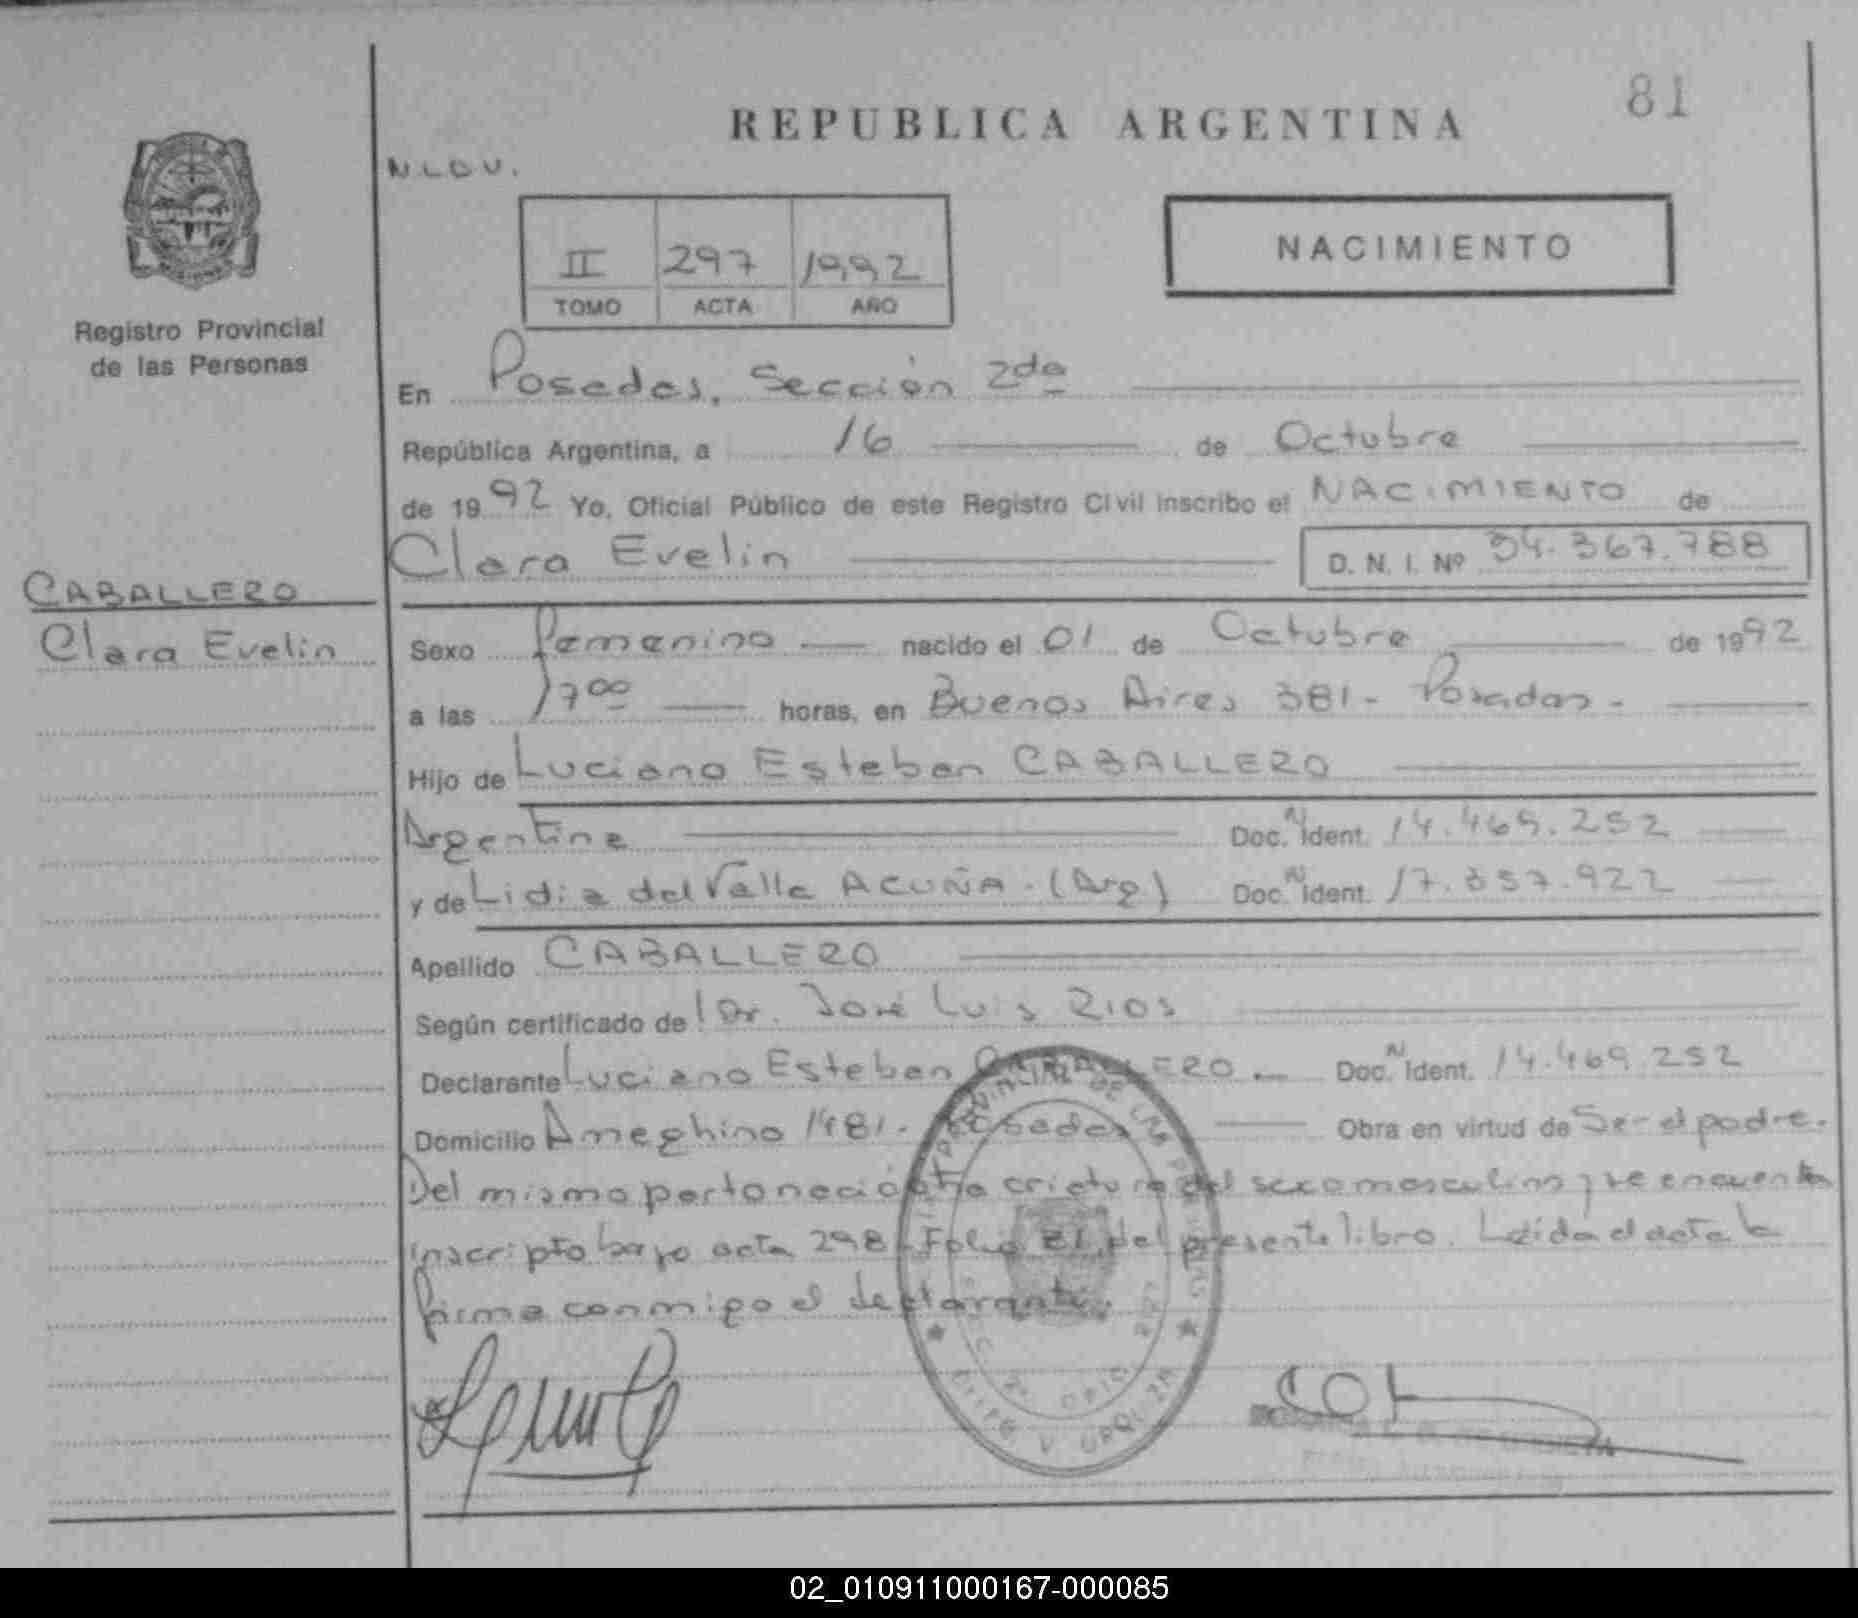 81
REPUBLICA ARGENTINA
N.L.D.U.
II 297 1992
TOMO ACTA AÑO
NACIMIENTO
Registro Provincial
de las Personas
En Posadas, Sección 2da
República Argentina, a 16 de Octubre
de 1992 Yo, Oficial Público de este Registro Civil inscribo el NACIMIENTO de
Clara Evelin D. N. I. Nº 34.367.788
CABALLERO
Clara Evelin
Sexo femenino nacido el 01 de Octubre de 1992
a las 17 00 horas, en Buenos Aires 381 - Posadas -
Hijo de Luciano Esteban CABALLERO
Argentina Doc. N Ident. 14.469.252
y de Lidia del Valle ACUÑA - (Arg) Doc. N Ident. 17.357.922
Apellido CABALLERO
Según certificado de Dr. José Luis Rios
Declarante Luciano Esteban CABALLERO. Doc. N Ident. 14.469.252
Domicilio Ameghino 1481 - Posadas Obra en virtud de Ser el padre.
Del mismo parto nació otra criatura del sexo masculino y se encuentra
inscripto bajo acta 298 Folio 81 del presente libro. Leída el acta la
firma conmigo el declarante.
02_010911000167-000085